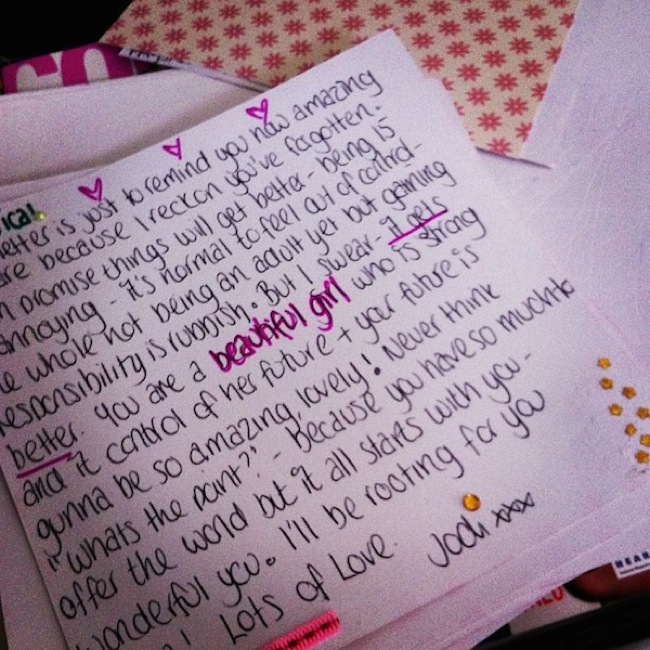 letter is just to remind you how amazing
are because I reckon you've forgotten.
promise things will get better - being is
annoying - it's normal to feel out of control -
whole not being an adult yet but gaining
responsibility is rubbish. But I swear - it gets
better. You are a beautiful girl who is strong
and it control of her future + your future is
gunna be so amazing, lovely! Never think
"whats the point?" - because you have so much to
offer the world but it all starts with you -
wonderful you. I'll be rooting for you
! Lots of Love. Jodi xxxx